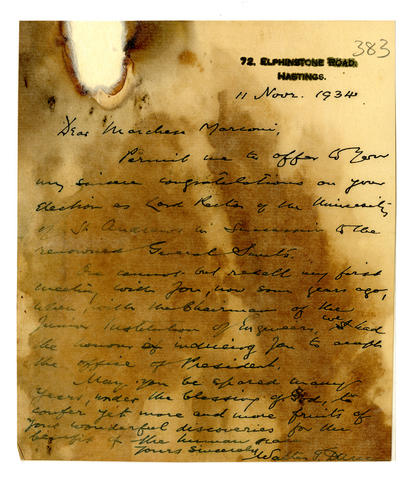 383
72. ELPHINSTONE ROAD.
HASTINGS.
11 Novr. 1934
Dear Marchese Marconi,
Permit me to offer to You
my sincere congratulations on your
election as Lord Rector of the University
of St Andrews in succession to the
renowned General Smuts.
I cannot but recall my first
meeting with You, now some years ago,
when, with the Chairman of the
Junior Institution of Engineers, we had
the honour of inducing You to accept
the office of President.
May you be spared many
years, under the blessing of God, to
confer yet more and more fruits of
your wonderful discoveries for the
benefit of the human race
Yours sincerely
Walter T.